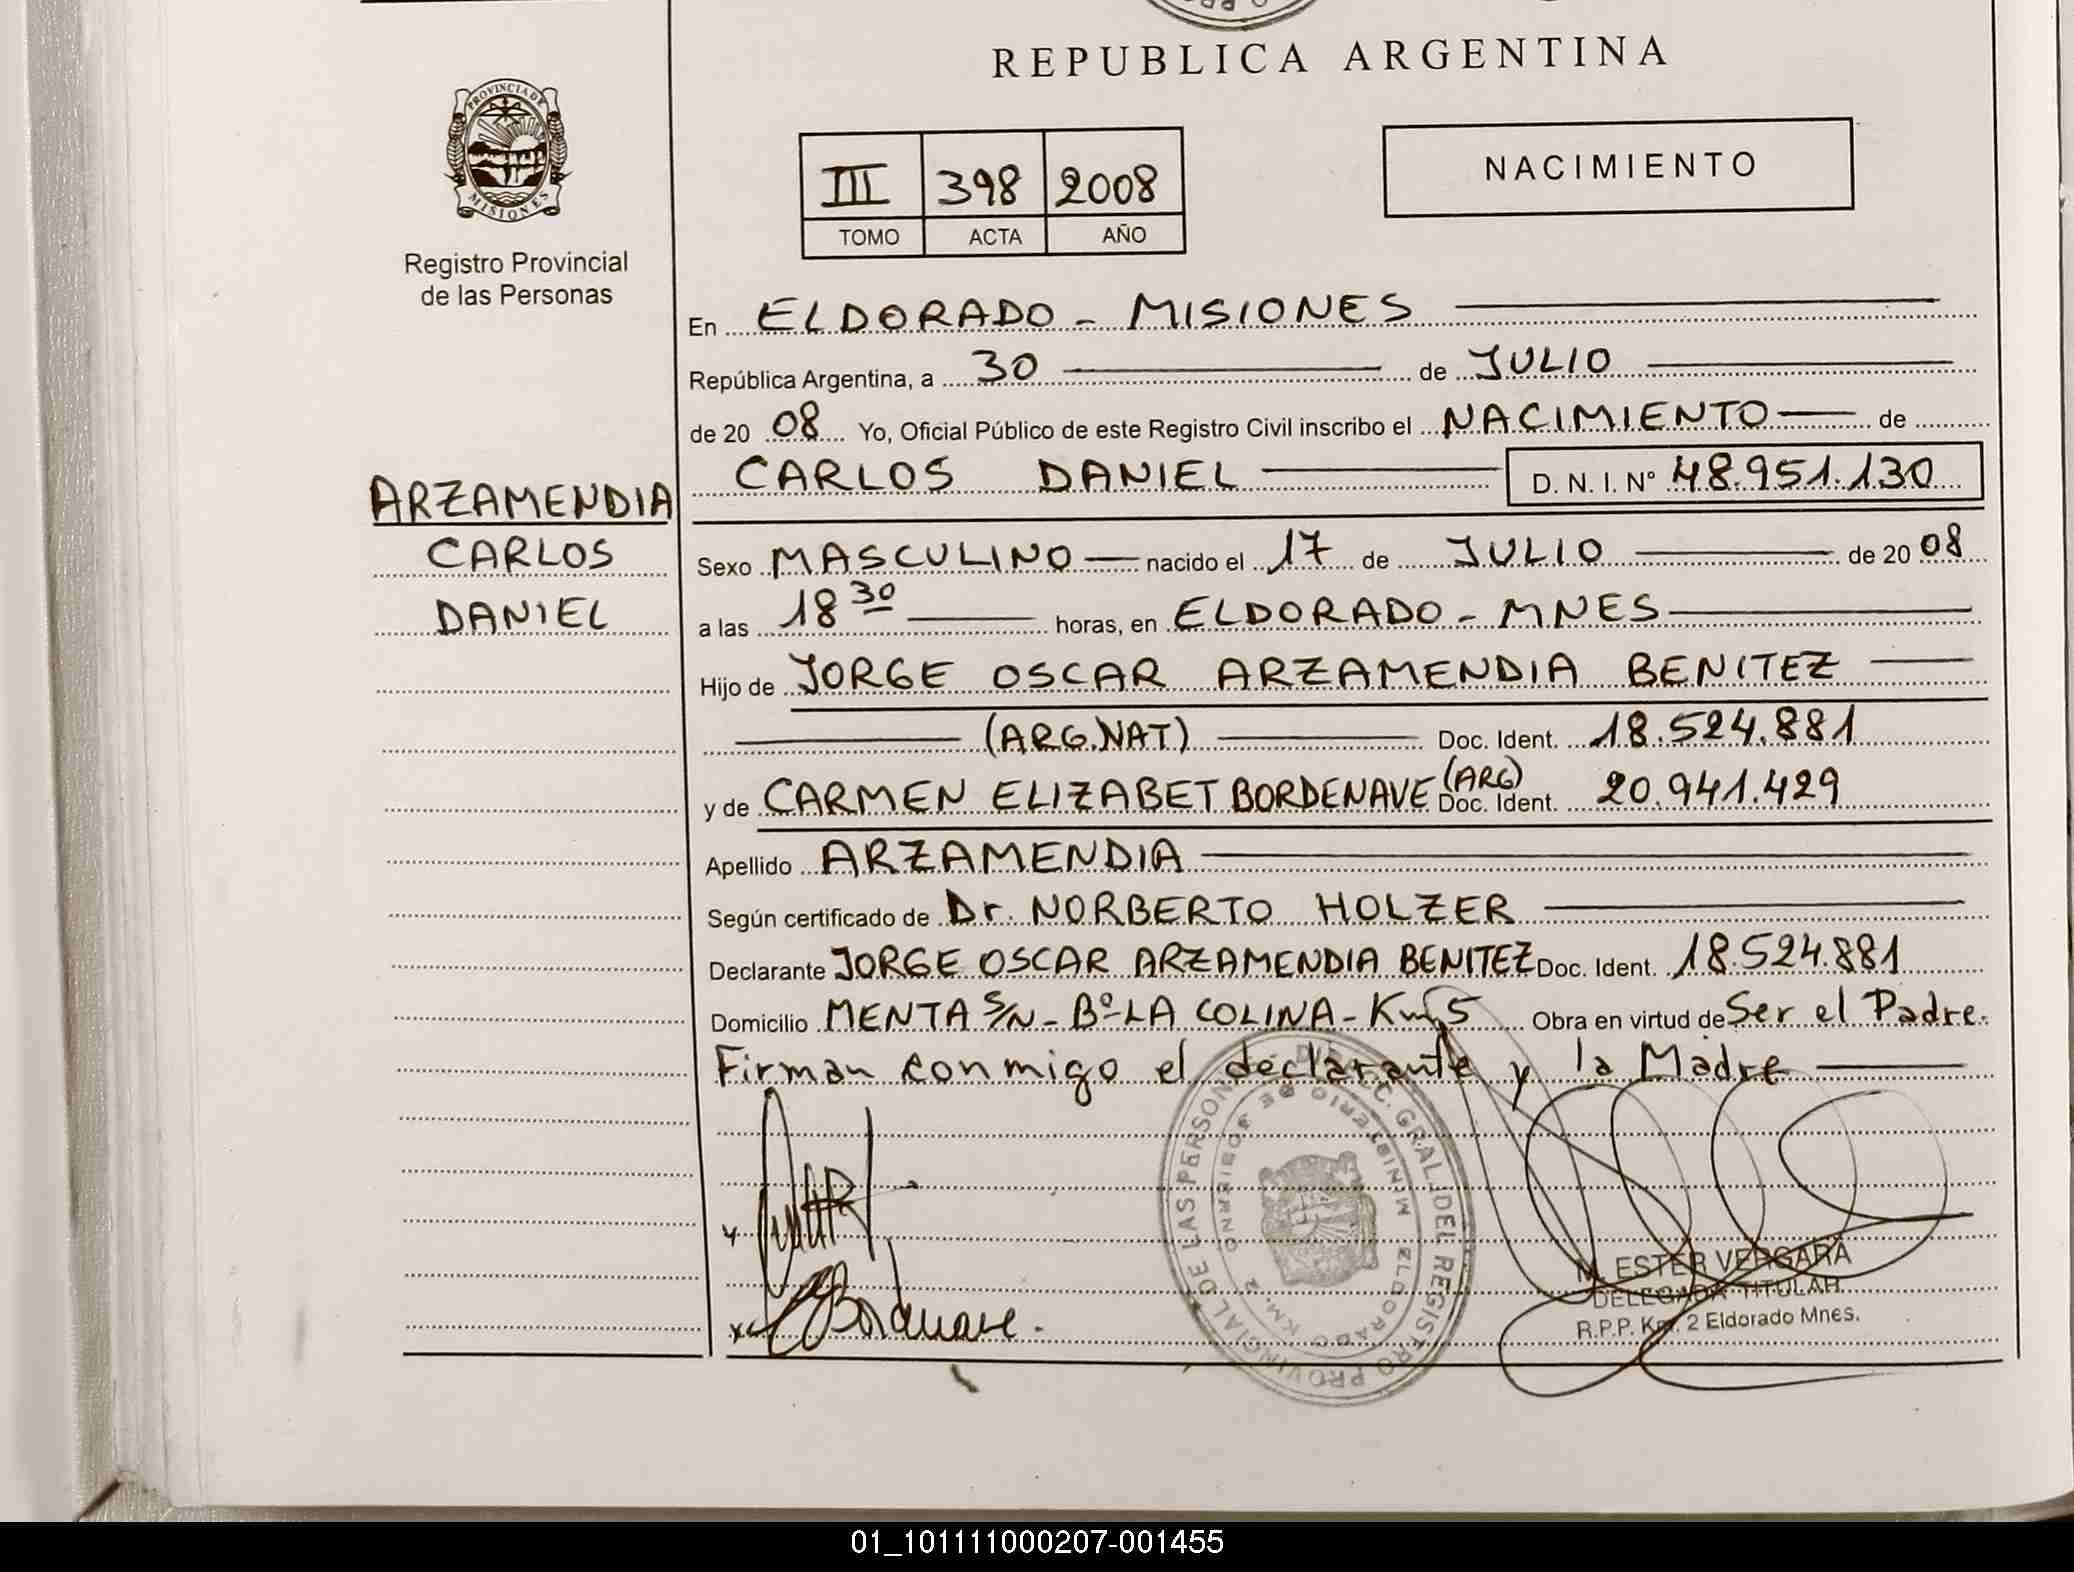 REPUBLICA ARGENTINA
PROVINCIA DE MISIONES
Registro Provincial
de las Personas
III 398 2008
TOMO ACTA AÑO
NACIMIENTO
En ELDORADO - MISIONES
República Argentina, a 30 de JULIO
de 20 08 Yo, Oficial Público de este Registro Civil inscribo el NACIMIENTO de
CARLOS DANIEL D. N. I. N° 48.951.130
ARZAMENDIA
CARLOS
DANIEL
Sexo MASCULINO nacido el 17 de JULIO de 20 08
a las 18 30 horas, en ELDORADO - MNES
Hijo de JORGE OSCAR ARZAMENDIA BENITEZ
(ARG.NAT) Doc. Ident. 18.524.881
y de CARMEN ELIZABET BORDENAVE (ARG) Doc. Ident. 20.941.429
Apellido ARZAMENDIA
Según certificado de Dr. NORBERTO HOLZER
Declarante JORGE OSCAR ARZAMENDIA BENITEZ Doc. Ident. 18.524.881
Domicilio MENTA S/N - B° LA COLINA - Km 5 Obra en virtud de Ser el Padre.
Firman conmigo el declarante y la Madre
DIREC. GRAL. DEL REGISTRO PROVINCIAL DE LAS PERSON
MINISTERIO DE GOBIERNO
ELDORADO KM. 2
Bordenave.
M. ESTER VERGARA
DELEGADA TITULAR
R.P.P. Km. 2 Eldorado Mnes.
01_101111000207-001455